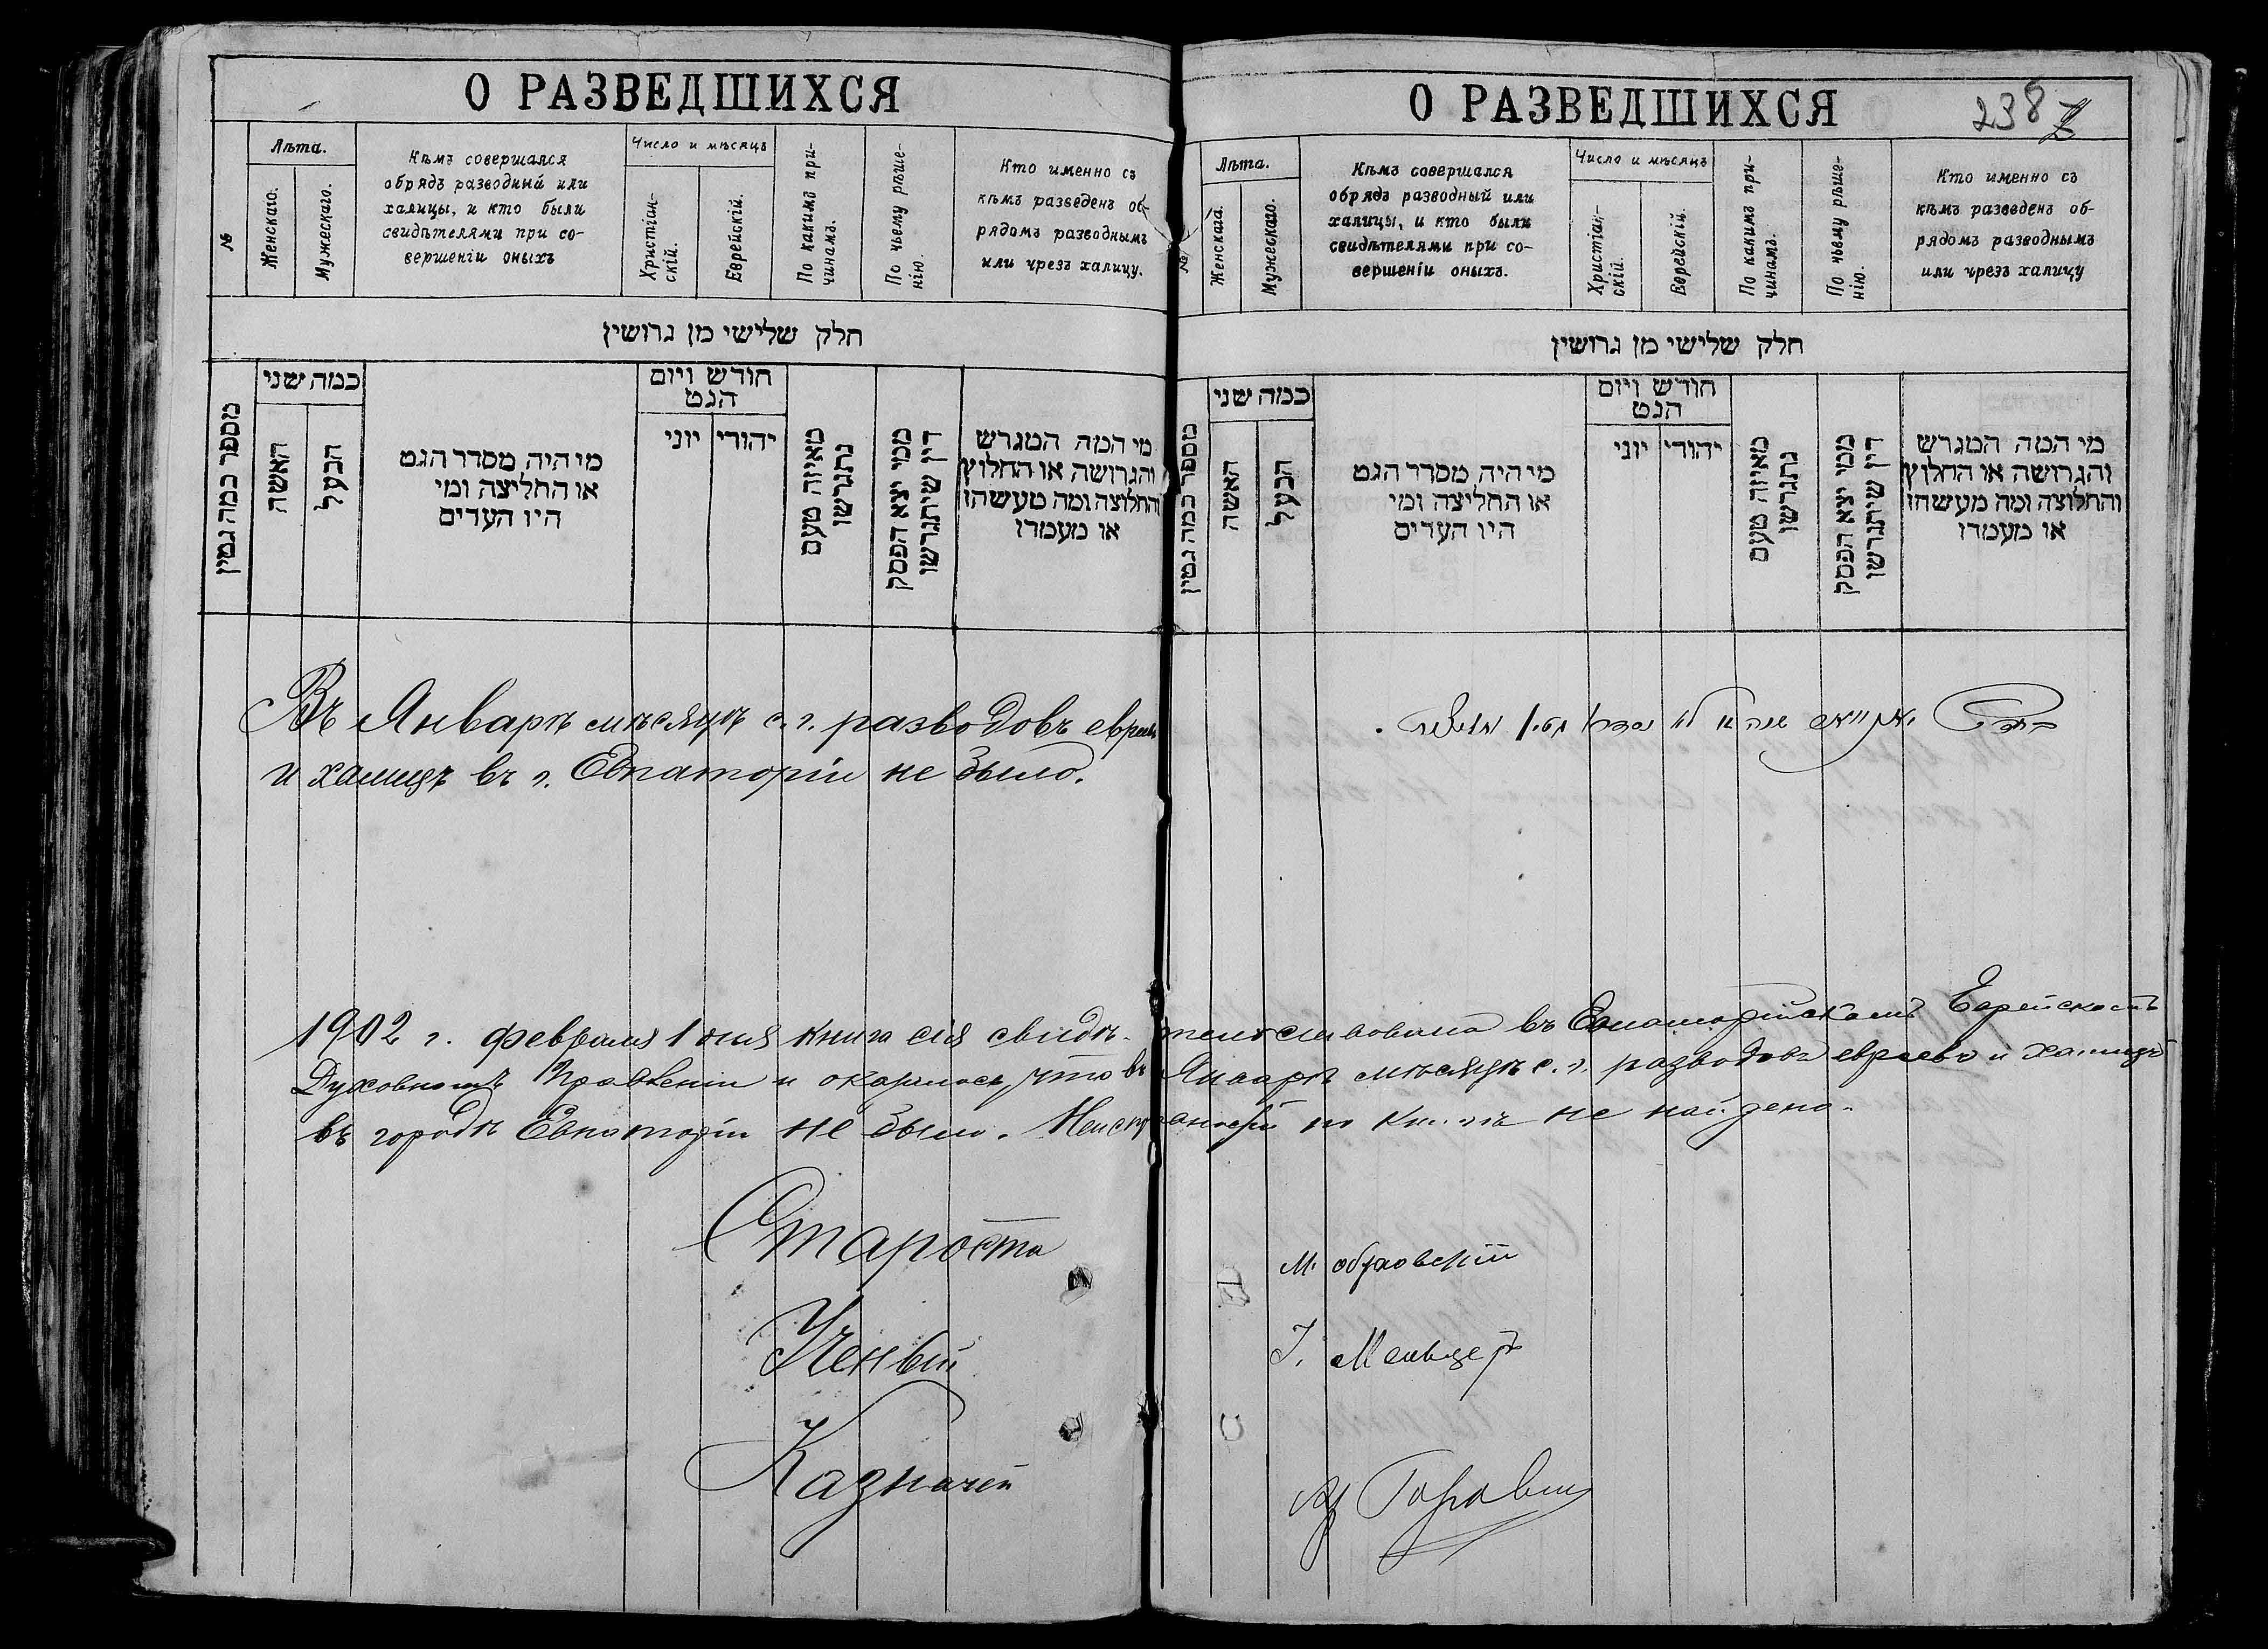 О РАЗВЕДШИХСЯ
№
Лѣта.
Женскаго.
Мужескаго.
Кѣмъ совершался
обрядъ разводный или
халицы, и кто были
свидѣтелями при со-
вершеніи оныхъ
Число и мѣсяцъ
Христіан-
скій.
Еврейскій.
По какимъ при-
чинамъ.
По чьему рѣше-
нію.
Кто именно съ
кѣмъ разведенъ об-
рядомъ разводнымъ
или чрезъ халицу.
חלק שלישי מן גרושין
מספר כמה גטין
כמה שני
האשה
הבעל
מי היה מסדר הגט
או החליצה ומי
היו העדים
חודש ויום
הגט
יוני
יהודי
מאיזה טעם
נתגרשו
ממי יצא הפסק
דין שיתגרשו
מי המה המגרש
והגרושה או החלוץ
והחלוצה ומה מעשהו
או מעמדו
Въ Январѣ мѣсяцѣ с. г. разводовъ евреевъ
и халицъ въ г. Евпаторіи не было.
О РАЗВЕДШИХСЯ
238
№
Лѣта.
Женскаго.
Мужескаго.
Кѣмъ совершался
обрядъ разводный или
халицы, и кто были
свидѣтелями при со-
вершеніи оныхъ.
Число и мѣсяцъ
Христіан-
скій.
Еврейскій.
По какимъ при-
чинамъ.
По чьему рѣше-
нію.
Кто именно съ
кѣмъ разведенъ об-
рядомъ разводнымъ
или чрезъ халицу
חלק שלישי מן גרושין
מספר כמה גטין
כמה שני
האשה
הבעל
מי היה מסדר הגט
או החליצה ומי
היו העדים
חודש ויום
הגט
יוני
יהודי
מאיזה טעם
נתגרשו
ממי יצא הפסק
דין שיתגרשו
מי המה המגרש
והגרושה או החלוץ
והחלוצה ומה מעשהו
או מעמדו
1902 г. февраля 1 дня книга сія свидѣтельствована въ Евпаторійскомъ Еврейскомъ
Духовномъ Правленіи и оказалось, что въ Январѣ мѣсяцѣ с. г. разводовъ евреевъ и халицъ
въ городѣ Евпаторіи не было. Неисправностей по книгѣ не найдено.
Староста М.
Ученый І. Мельцеръ
Казначей